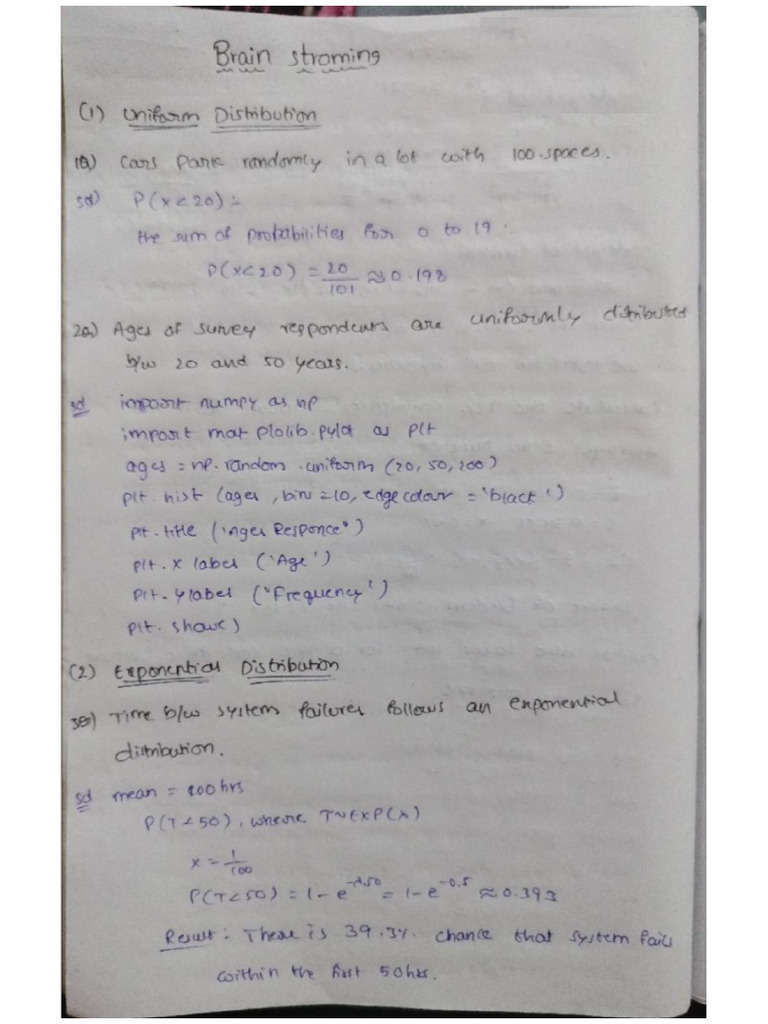 Brain stroming
(1) Uniform Distribution
1Q) Cars Park randomly in a lot with 100 spaces.
sol) P(X<20) =
the sum of probabilities for 0 to 19.
P(X<20) = 20/101 ≈ 0.198
2Q) Ages of survey respondents are uniformly distributed
b/w 20 and 50 years.
sol import numpy as np
import mat plolib.pylot as plt
ages = np.random.uniform (20, 50, 200)
plt. hist (ages, bin = 10, edge colour = 'black')
plt. title ('Ages Responce')
plt. x label ('Age')
plt. ylabel ('Frequency')
plt. show()
(2) Exponential Distribution
3Q) Time b/w system failures follows an exponential
distribution.
sol mean = 100 hrs
P(T<50), where T~EXP(λ)
x = 1/100
P(T<50) = 1 - e^-λ.50 = 1 - e^-0.5 ≈ 0.393
Result: There is 39.3% chance that system fails
within the first 50hrs.